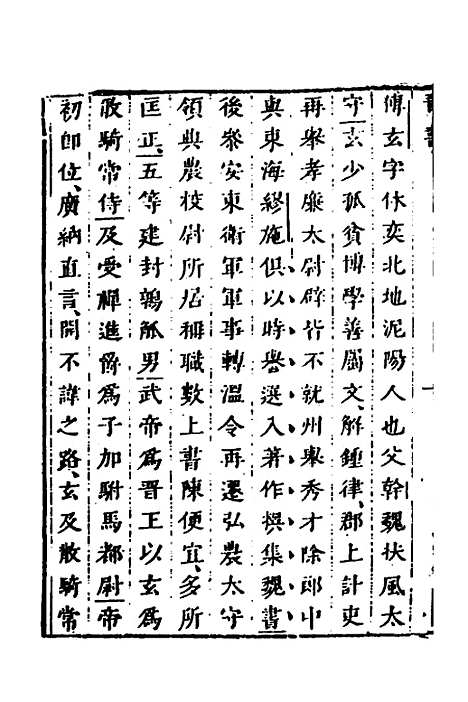 傅玄字休奕北地泥陽人也父幹魏扶風太
守玄少孤貧博學善屬文解鍾律郡上計吏
再舉孝廉太尉辟皆不就州舉秀才除郎中
與東海繆施俱以時譽選入著作撰集魏書
後參安東衛軍軍事轉溫令再遷弘農太守
領典農校尉所居稱職數上書陳便宜多所
匡正五等建封鶉觚男武帝為晉王以玄為
散騎常侍及受禪進爵為子加駙馬都尉帝
初即位廣納直言開不諱之路玄及散騎常